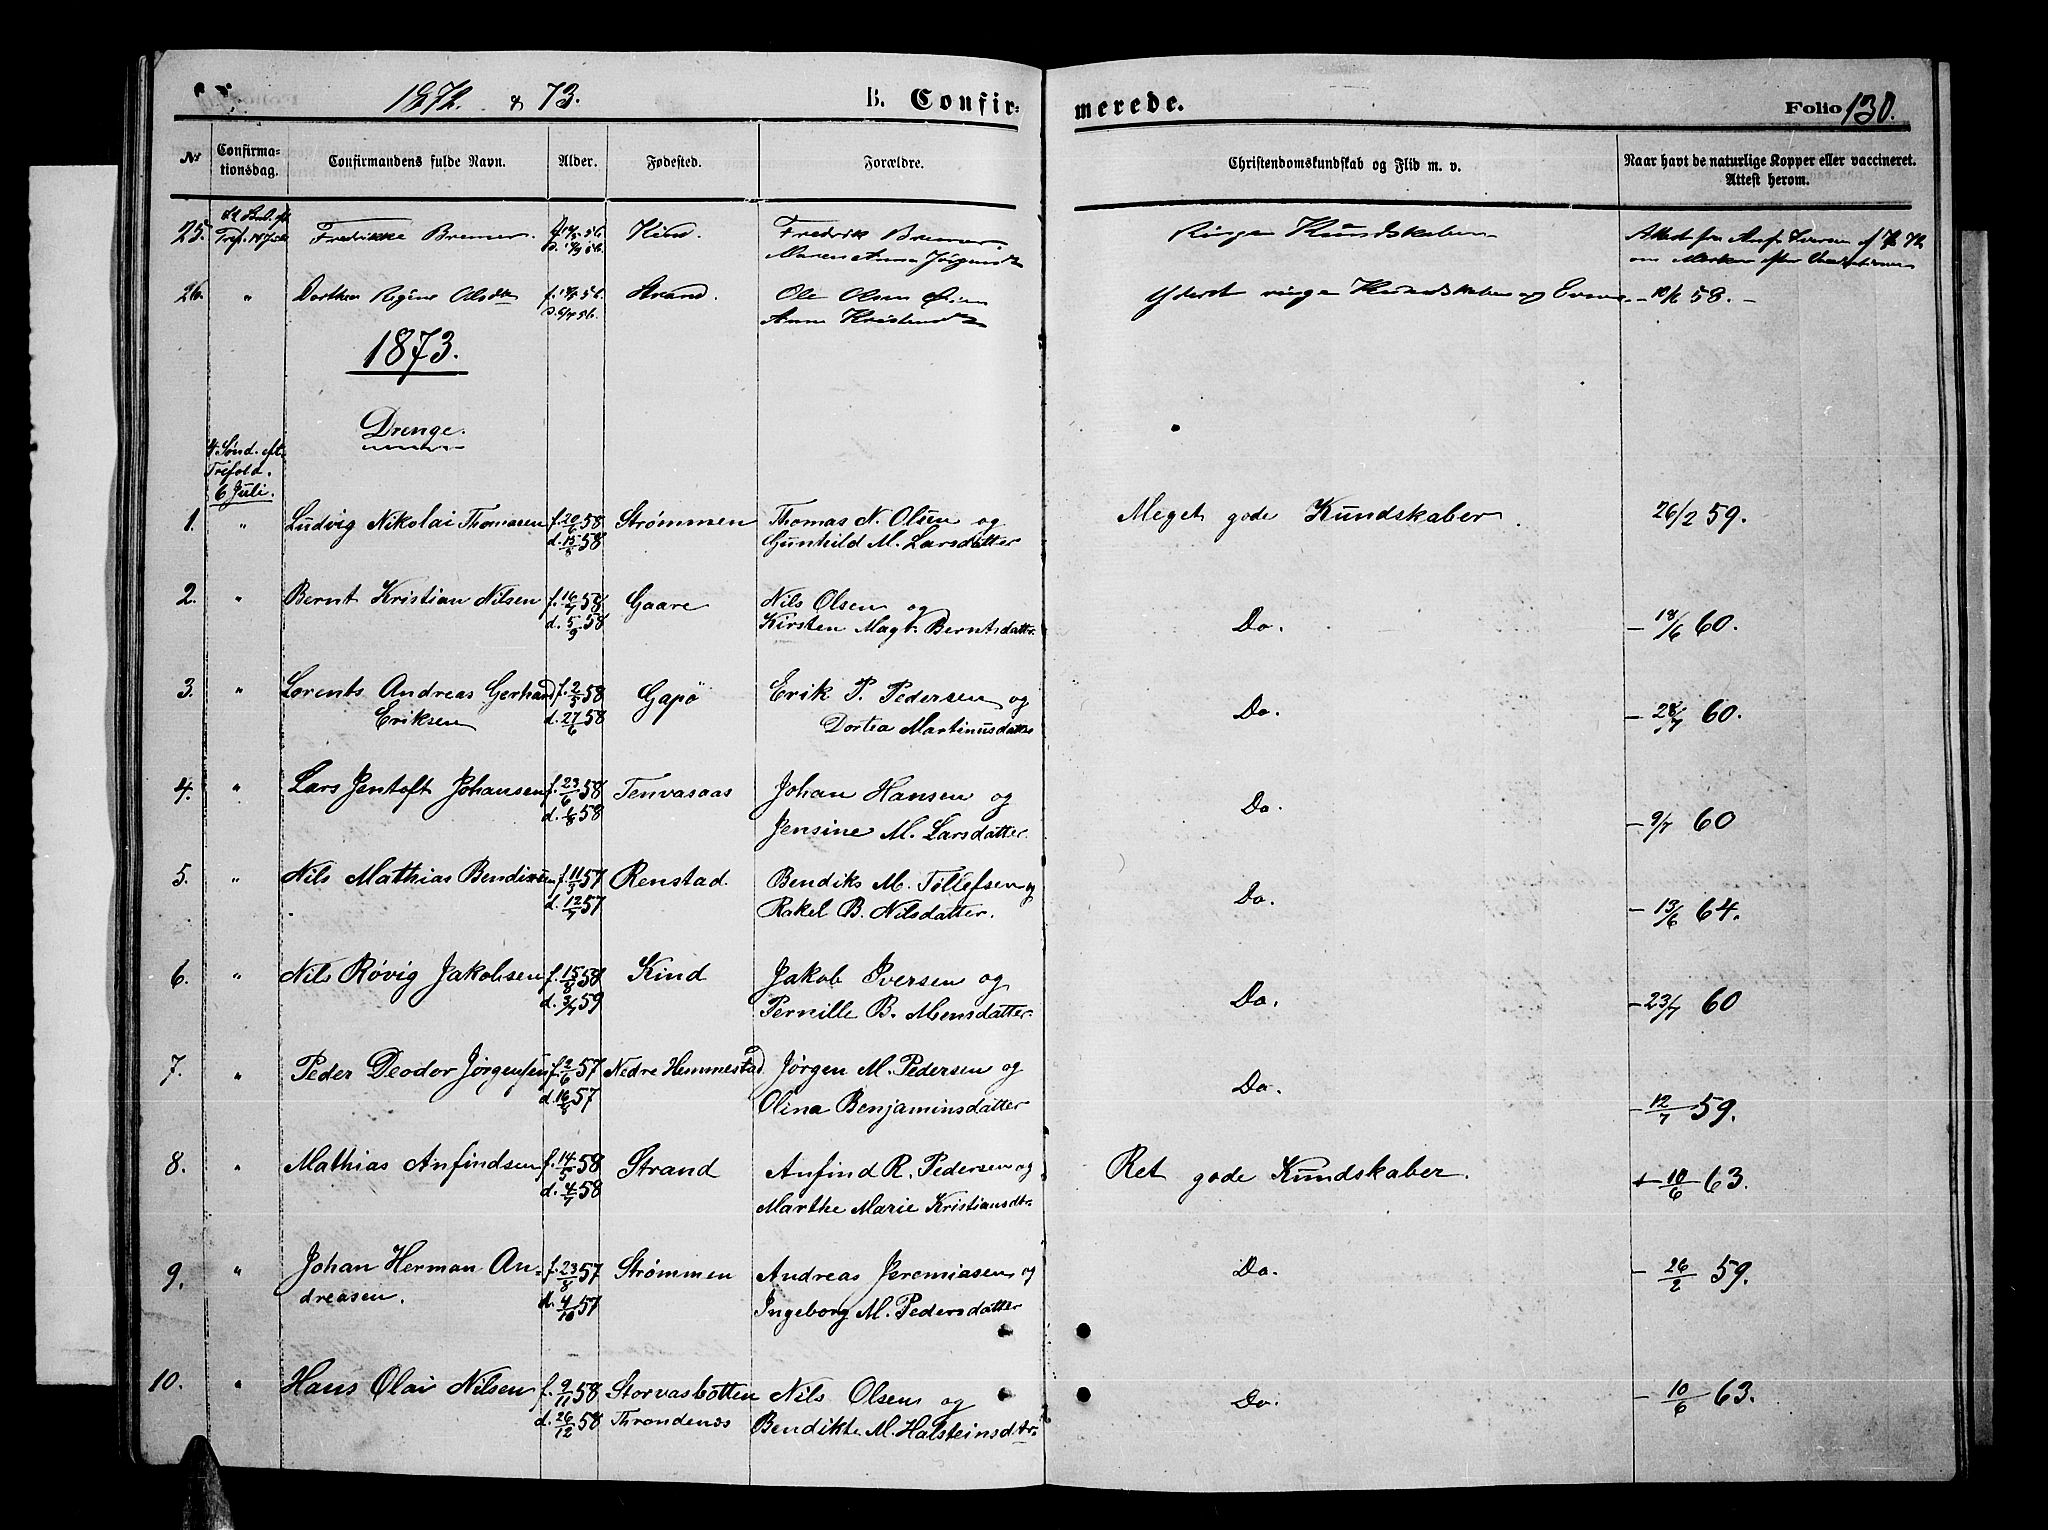 1872 & 73. B. Confirmerede. Folio 130.
No Confirmationsdag. Confirmandens fulde Navn. Alder. Fødested. Forældre. Christendomskundskab og Flid m. v. Naar havt de naturlige Kopper eller vaccineret. Attest herom.
25. Fredrikke Bremer. Kind. Fredrik Bremer Ringe Kundskaber
26. " Dorthea Regine Olsdtr Strand. Ole Olsen Yderst ringe Kundskaber og Evner - 10/6 58. -
1873.
Drenge.
4. Sønd. eft.
Trefold.
6 Juli.
1. " Ludvig Nikolai Thomasen f. 20/6 58 Strømmen Thomas N. Olsen og Meget gode Kundskaber. 26/2 59.
d. 15/8 58 Gunhild M. Larsdatter
2. " Bernt Kristian Nilsen f. 16/7 58 Gaare Nils Olsen og Do. - 18/6 60.
d. 5/9 58 Kirsten Magt. Berntsdattr.
3. " Lorents Andreas Gerhard f. 2/5 58 Gapø Erik P. Pedersen og Do. - 28/7 60.
Eriksen d. 27/6 58 Dortea Martinusdatter
4. " Lars Jentoft Johansen f. 23/6 58 Tenvasaas Johan Hansen og Do. - 9/7 60
d. 1/8 58 Jensine M. Larsdatter.
5. " Nils Mathias Bendixen f. 11/5 57 Renstad. Bendiks M. Tollefsen og Do. - 13/6 64.
d. 12/7 57 Rakel B. Nilsdatter.
6. " Nils Røvig Jakobsen f. 15/8 58 Kind Jakob Iversen og Do. - 23/7 60
d. 3/7 59 Pernille B. Monsdatter.
7. " Peder Deodor Jørgensen f. 2/6 57 Nedre Hemmestad Jørgen M. Pedersen og Do. - 12/7 59.
d. 16/8 57 Olina Benjaminsdatter
8. " Mathias Anfindsen f. 14/5 58 Strand Anfind R. Pedersen og Ret gode Kundskaber. + 10/6 63.
d. 4/7 58 Marthe Marie Kristiansdtr.
9. " Johan Herman An- f. 23/8 57 Strømmen Andreas Jeremiasen og Do. - 26/2 59.
dreasen. d. 4/10 57 Ingeborg M. Pedersdatter
10. " Hans Olai Nilsen f. 9/11 58 Storvasbotten Nils Olsen og Do. - 10/6 63.
d. 26/12 58 Throndenæs Bendikte M. Halsteinsdtr.